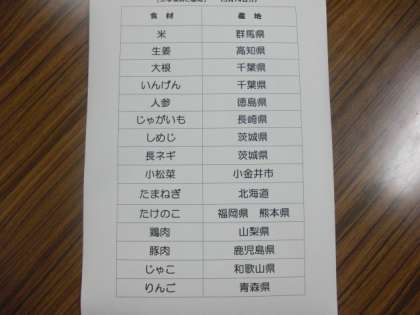 食材 産地
米 群馬県
生姜 高知県
大根 千葉県
いんげん 千葉県
人参 徳島県
じゃがいも 長崎県
しめじ 茨城県
長ネギ 茨城県
小松菜 小金井市
たまねぎ 北海道
たけのこ 福岡県 熊本県
鶏肉 山梨県
豚肉 鹿児島県
じゃこ 和歌山県
りんご 青森県